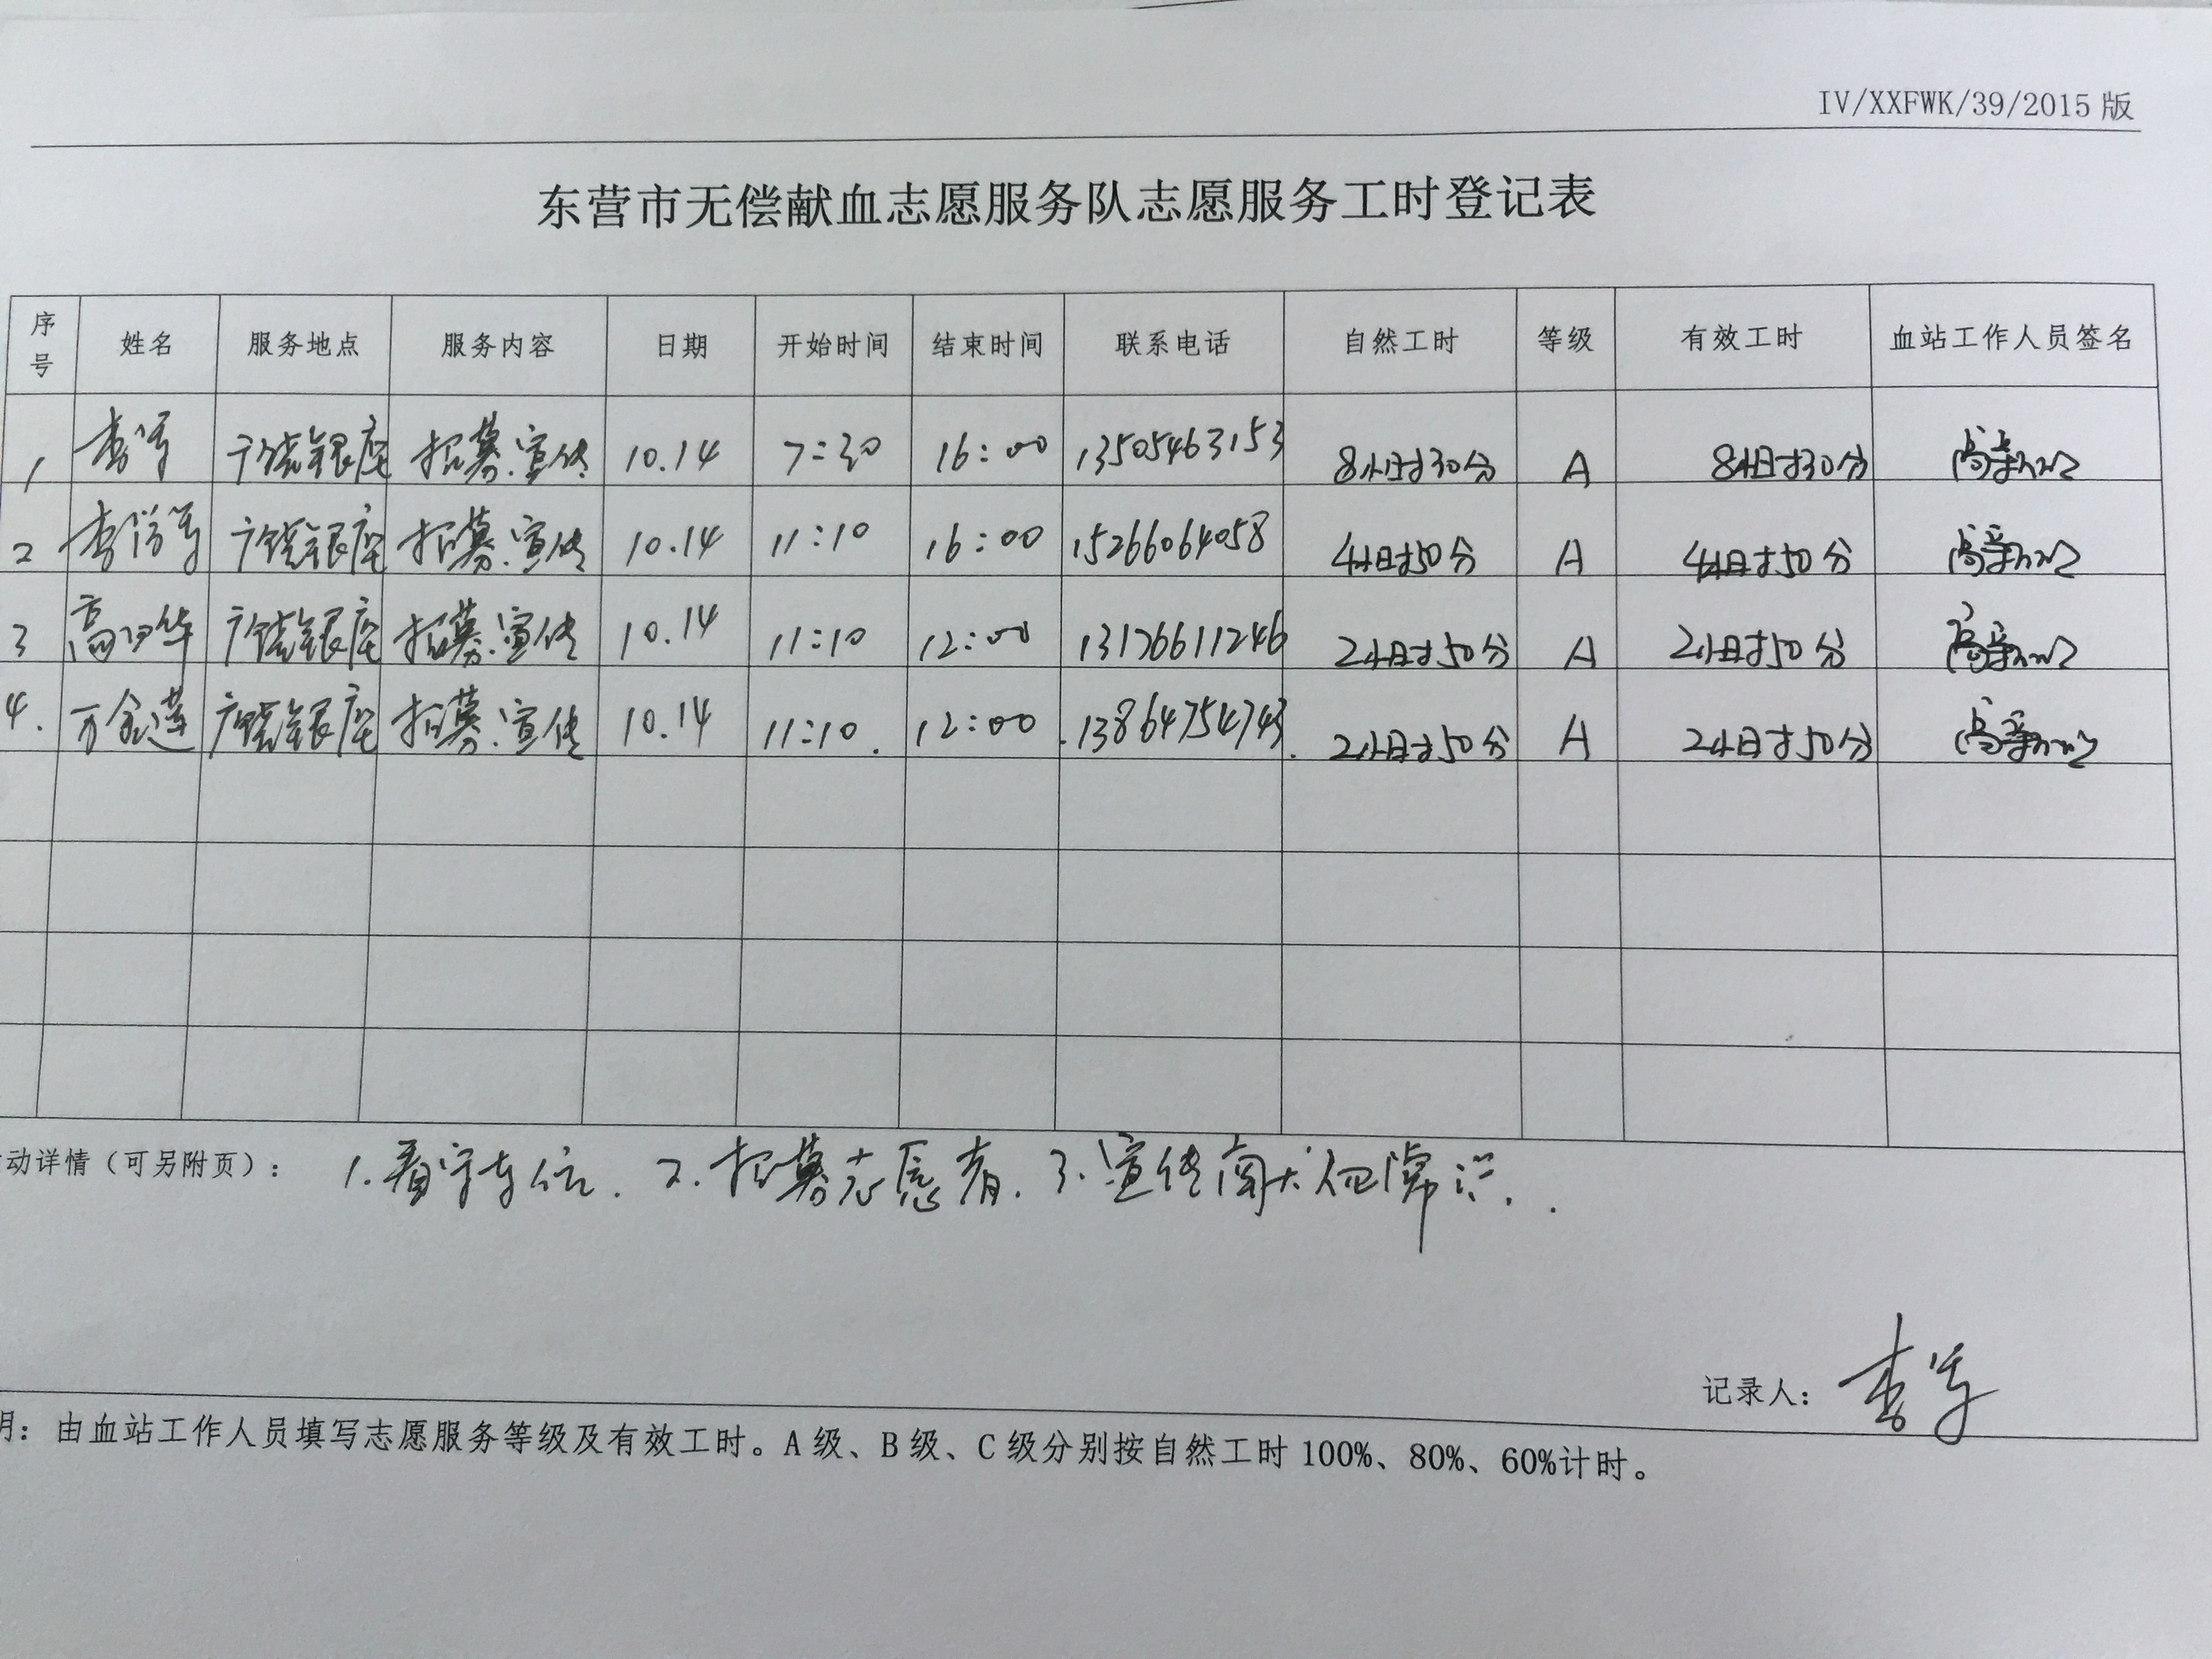 IV/XXFWK/39/2015 版
东营市无偿献血志愿服务队志愿服务工时登记表
序号 姓名 服务地点 服务内容 日期 开始时间 结束时间 联系电话 自然工时 等级 有效工时 血站工作人员签名
1 李军 广饶银座 招募.宣传 10.14 7:30 16:00 13505463153 8小时30分 A 8小时30分
2 李 广饶银座 招募.宣传 10.14 11:10 16:00 15266064058 4小时50分 A 4小时50分
3 高 华 广饶银座 招募.宣传 10.14 11:10 12:00 13176611246 2小时50分 A 2小时50分
4. 万金莲 广饶银座 招募.宣传 10.14 11:10. 12:00 13864754743. 2小时50分 A 2小时50分
动详情（可另附页）： 1.看守车位. 2.招募志愿者. 3.宣传 常识.
记录人： 李军
明：由血站工作人员填写志愿服务等级及有效工时。A 级、B 级、C 级分别按自然工时 100%、80%、60%计时。